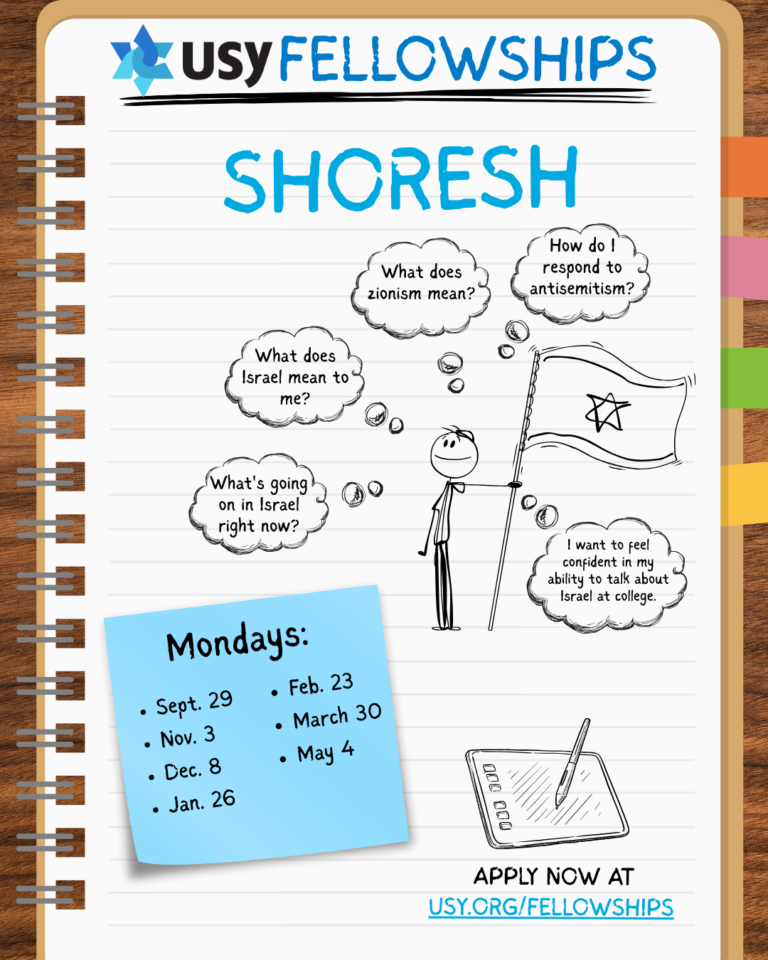 usy FELLOWSHIPS
SHORESH
How do I
respond to
antisemitism?
What does
zionism mean?
What does
Israel mean to
me?
What's going
on in Israel
right now?
I want to feel
confident in my
ability to talk about
Israel at college.
Mondays:
• Sept. 29
• Nov. 3
• Dec. 8
• Jan. 26
• Feb. 23
• March 30
• May 4
APPLY NOW AT
USY.ORG/FELLOWSHIPS